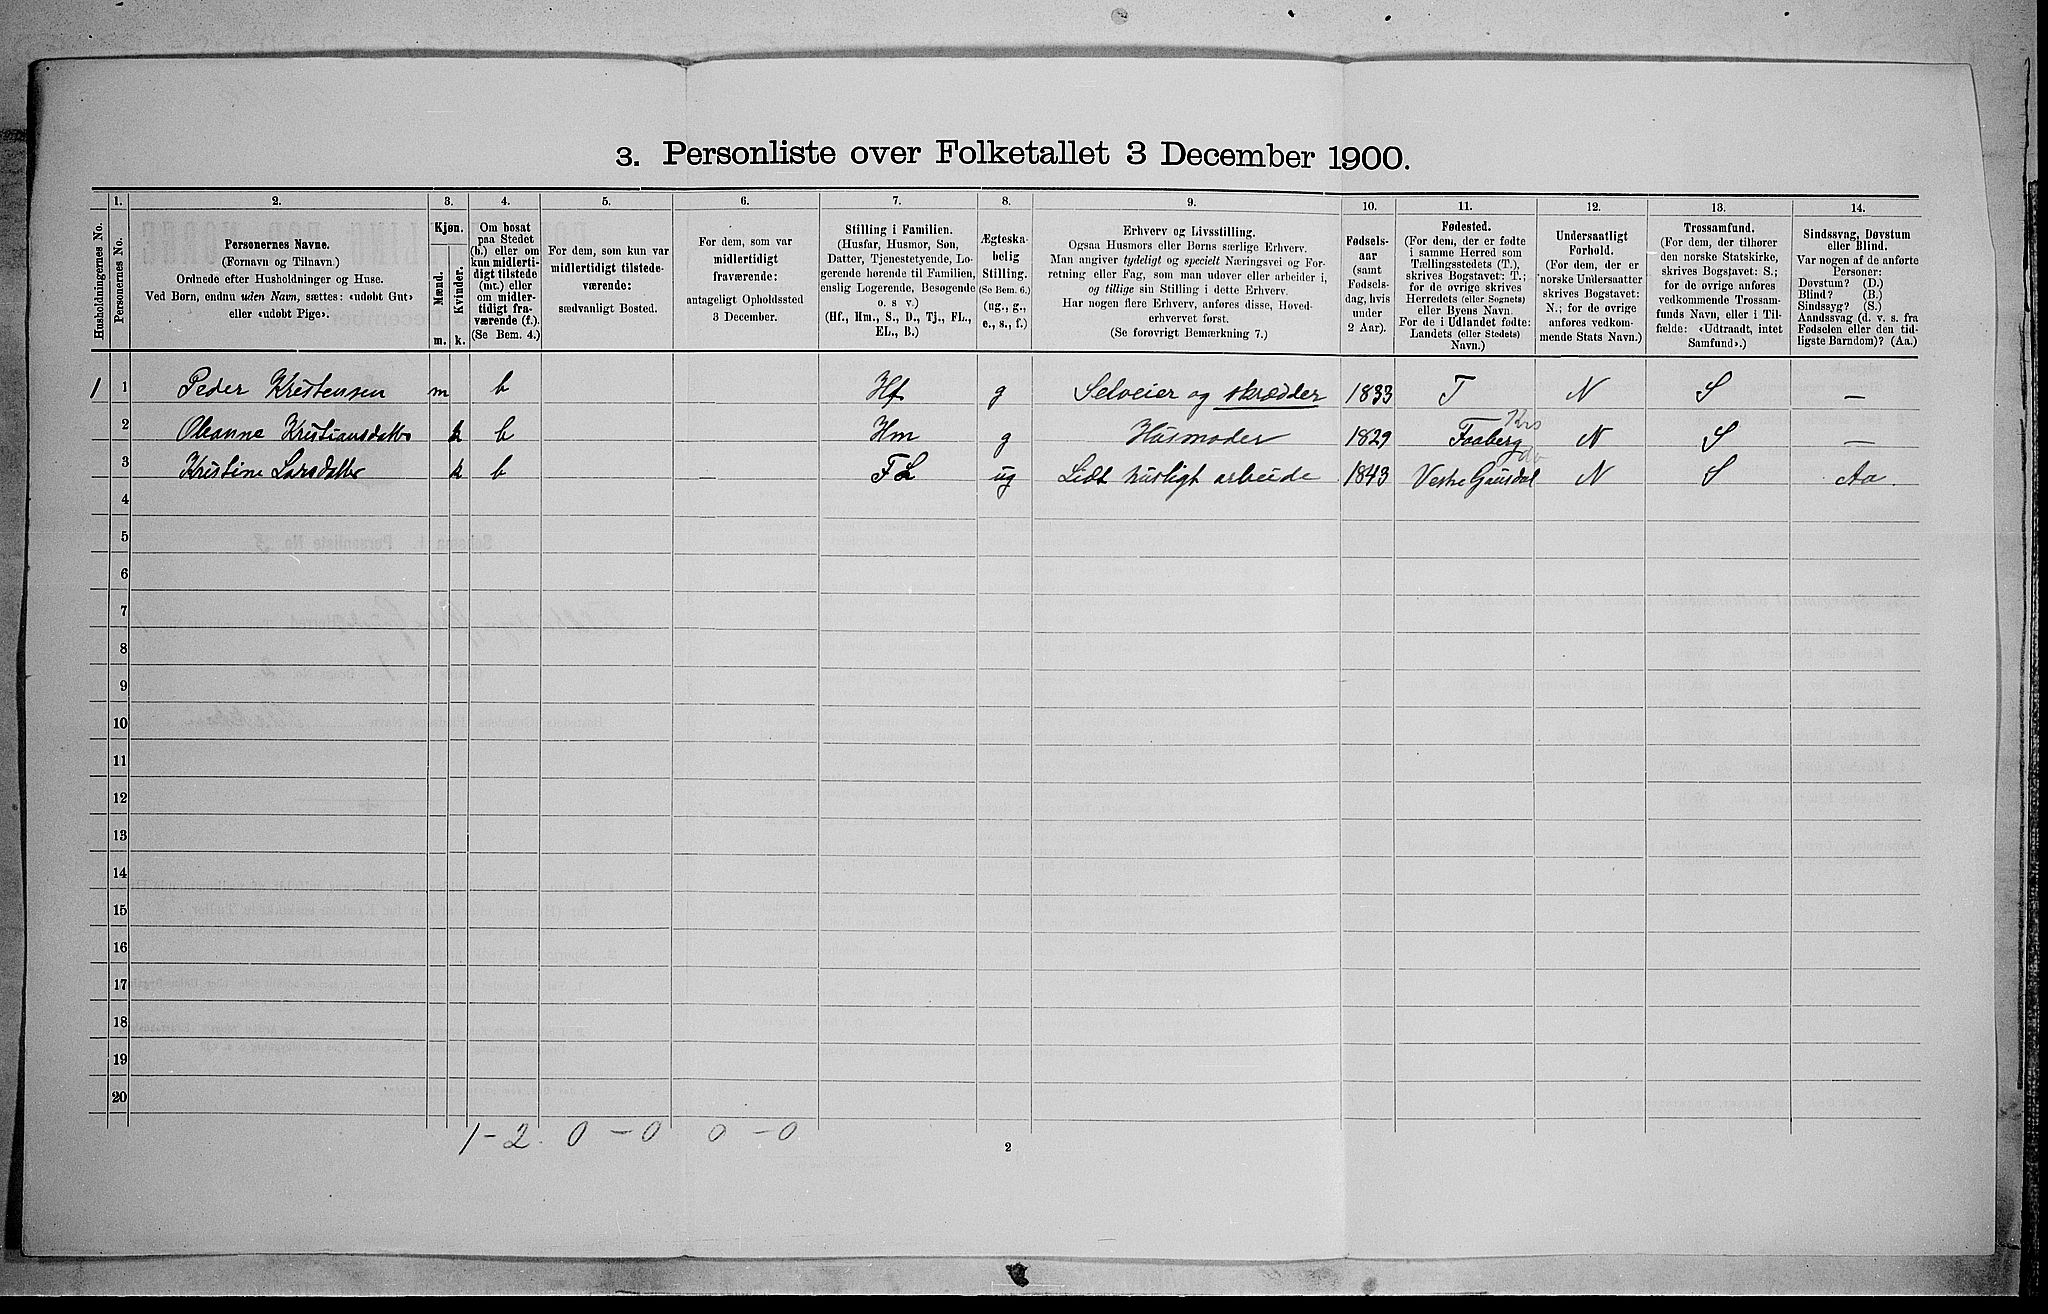 3. Personliste over Folketallet 3 December 1900.
1. 2. 3. 4. 5. 6. 7. 8. 9. 10. 11. 12. 13. 14.
Husholdningernes No.
Personernes No.
Personernes Navne.
(Fornavn og Tilnavn.)
Ordnede efter Husholdninger og Huse.
Ved Børn, endnu uden Navn, sættes: «udøbt Gut»
eller «udøbt Pige».
Kjøn.
Mænd.
Kvinder.
m. k.
Om bosat
paa Stedet
(b.) eller om
kun midlerti-
digt tilstede
(mt.) eller
om midler-
tidigt fra-
værende (f.).
(Se Bem. 4.)
For dem, som kun var
midlertidigt tilstede-
værende:
sædvanligt Bosted.
For dem, som var
midlertidigt
fraværende:
antageligt Opholdssted
3 December.
Stilling i Familien.
(Husfar, Husmor, Søn,
Datter, Tjenestetyende, Lo-
gerende hørende til Familien,
enslig Logerende, Besøgende
o. s v.)
(Hf., Hm., S., D., Tj., FL.,
EL., B.)
Ægteska-
belig
Stilling.
(Se Bem. 6.)
(ug., g.,
e., s., f.)
Erhverv og Livsstilling.
Ogsaa Husmors eller Børns særlige Erhverv.
Man angiver tydeligt og specielt Næringsvei og For-
retning eller Fag, som man udover eller arbeider i,
og tillige sin Stilling i dette Erhverv.
Har nogen flere Erhverv, anføres disse, Hoved-
erhvervet først.
(Se forøvrigt Bemærkning 7.)
Fødsels-
aar
(samt
Fødsels-
dag, hvis
under
2 Aar).
Fødested.
(For dem, der er fødte
i samme Herred som
Tællingsstedets (T.),
skrives Bogstavet: T.;
for de øvrige skrives
Herredets (eller Sognets)
eller Byens Navn.
For de i Udlandet fødte:
Landets (eller Stedets)
Navn.)
Undersaatligt
Forhold.
(For dem, der er
norske Undersaatter
skrives Bogstavet:
N.; for de øvrige
anføres vedkom-
mende Stats Navn.)
Trossamfund.
(For dem, der tilhører
den norske Statskirke,
skrives Bogstavet: S.;
for de øvrige anføres
vedkommende Trossam-
funds Navn, eller i Til-
fælde: «Udtraadt, intet
Samfund».)
Sindssvag, Døvstum
eller Blind.
Var nogen af de anførte
Personer:
Døvstum? (D.)
Blind? (B.)
Sindssyg? (S.)
Aandssvag (d. v. s. fra
Fødselen eller den tid-
ligste Barndom)? (Aa.)
1 1 Peder Kristensen m b Hf g Selveier og skrædder 1833 T N S —
2 Oleanne Kristiansdatter k b Hm g Husmoder 1829 Faaberg Krs N S —
3 Kristine Larsdatter k b FL ug Lidt husligt arbeide 1843 Vestre Gausdal do N S Aa.
4
5
6
7
8
9
10
11
12
13
14
15
16
17
18
19
20
1 – 2. 0 – 0 0 – 0
2